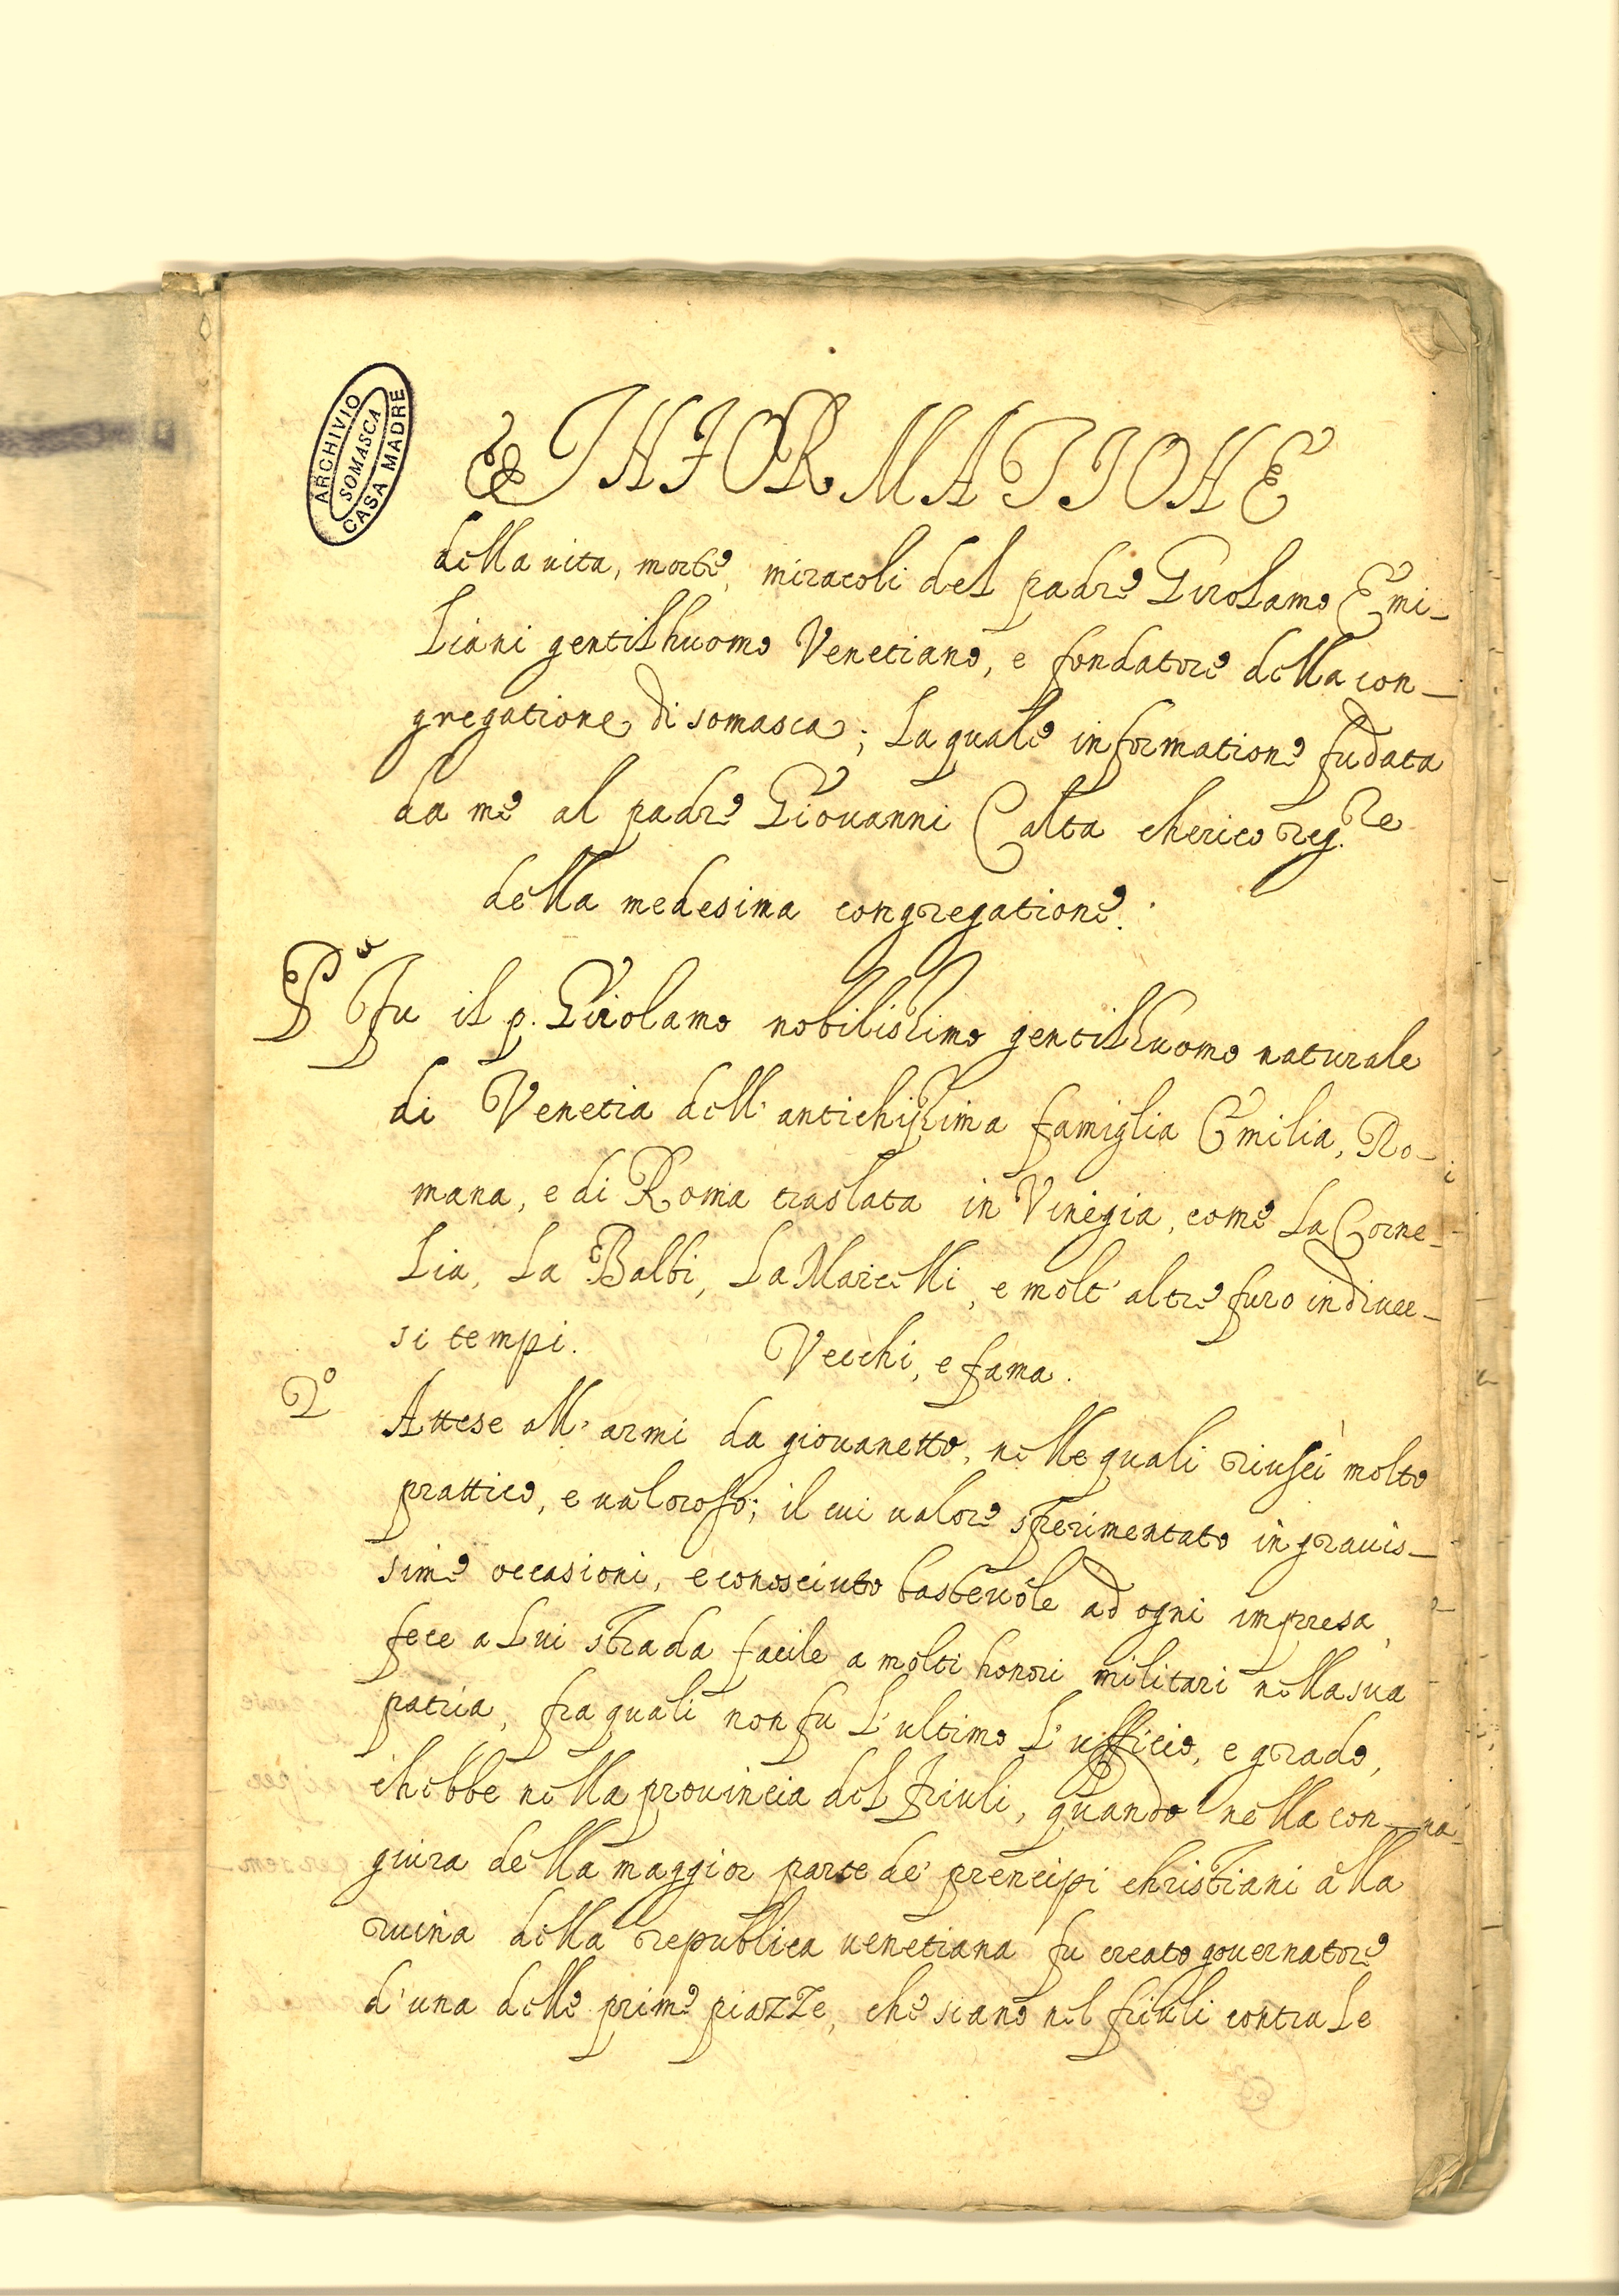 ARCHIVIO
SOMASCA
CASA MADRE
INFORMATIONE
della uita, morte, miracoli del padre Girolamo Emi-
liani gentilhuomo Venetiano, e fondatore della con-
gregatione di somasca; la quale informatione fu data
da me al padre Giouanni Calta cherico reg.re
della medesima congregatione.
Fu il p. Girolamo nobilissimo gentilhuomo naturale
di Venetia dell' antichissima famiglia Emilia, Ro-
mana, e di Roma traslata in Vinegia, come la Corne-
lia, la Balbi, la Marcelli, e molt' altre furo in diuer-
si tempi. Vecchi, e fama.
2º Attese all' armi da giouanetto, nelle quali riuscì molto
prattico, e ualoroso; il cui ualore sperimentato in grauis-
sime occasioni, e conosciuto basteuole ad ogni impresa,
fece a lui strada facile a molti honori militari nella sua
patria, fra quali non fu l' ultimo l' ufficio, e grado,
c'hebbe nella prouincia del friuli, quando nella con-
giura della maggior parte de' prencipi christiani alla
ruina della republica uenetiana fu creato gouernatore
d' una delle prime piazze, che siano nel friuli contra le